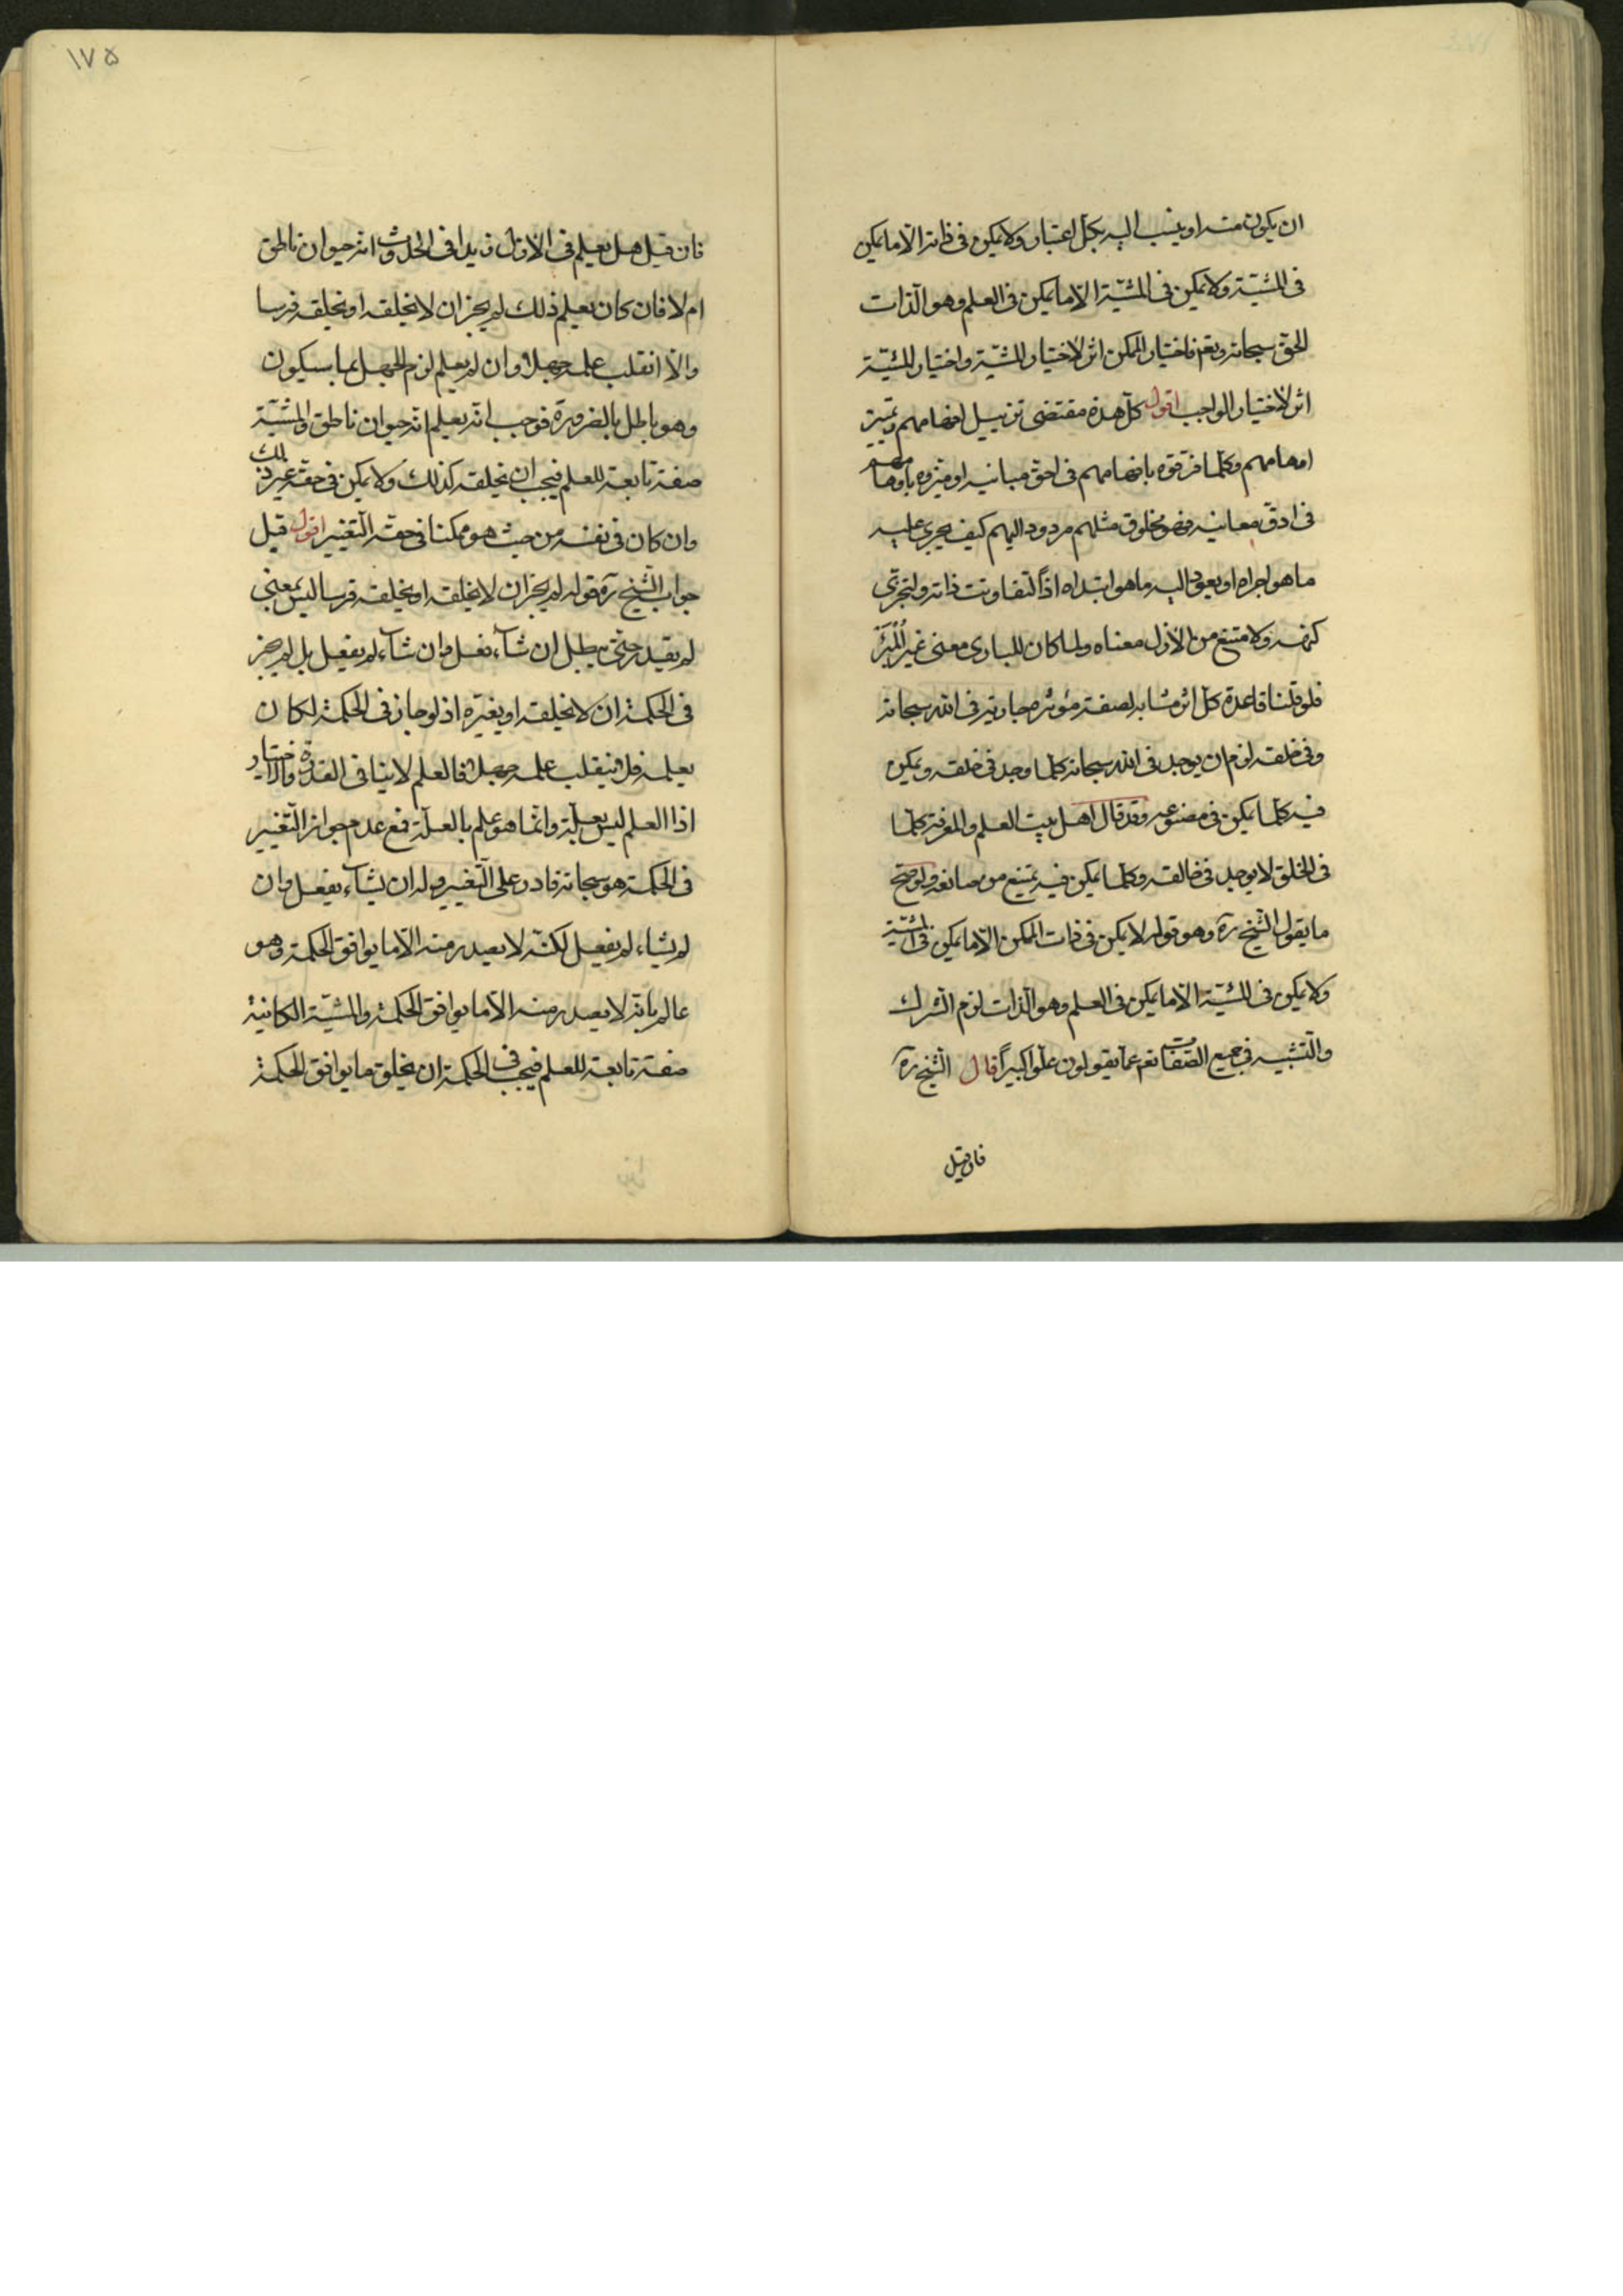 ان يكون منه او ينسب اليه بكل اعتبار ولا يمكن فى ذاته الّا ما يمكن
فى المشيّة ولا يمكن فى المشيّة الّا ما يمكن فى العلم وهو الذات
الحق سبحانه وتعم فاختيار الممكن اثر لاختيار المشيّة واختيار المشيّة
اثر لاختيار الواجب اقول كلّ هذه مقتضى تزييل افهامهم وتمييز
اوهامهم وكلما فرّقوه بافهامهم فى احق مبانيه او ميزوه باوهامهم
فى ادقّ معانيه فهو مخلوق مثلهم مردود اليهم كيف يجرى عليه
ما هو اجراه او يعود اليه ما هو ابتداه اذاً لتفاوتت ذاته ولتجزّى
كنهه ولامتنع من الازل معناه ولما كان للبارى معنى غير المُبَرَّء
فلو قلنا قاعدة كلّ اثر مشابه لصفة مؤثره جارية فى الله سبحانه
وفى خلقه لزم ان يوجد فى الله سبحانه كلما وجد فى خلقه ويمكن
فيه كلما يمكن فى مصنوعه وقد قال اهل بيت العلم والمعرفة كلما
فى الخلق لا يوجد فى خالقه وكلما يمكن فيه يمتنع من صانعه ولو صح
ما يقول الشيخ ره وهو قوله لا يمكن فى ذات الممكن الّا ما يمكن فى المشيّة
ولا يمكن فى المشيّة الّا ما يمكن فى العلم وهو الذات لزم الشرك
والتشبيه فى جميع الصّفات تعم عما يقولون علوّا كبيراً قال الشيخ ره
فان قيل
١٧۵
فان قيل هل يعلم فى الازل زيدا فى الحدوث انه حيوان ناطق
ام لا فان كان يعلم ذلك لم يجز ان لا يخلقه او يخلقه فرسا
والّا انقلب علمه جهلا وان لم يعلم لزم الجهل بما سيكون
وهو باطل بالضرورة فوجب انه يعلم انه حيوان ناطق والمشيّة
صفة تابعة للعلم فيجب ان يخلقه كذلك ولا يمكن فى حقه غير ذلك
وان كان فى نفسه من حيث هو ممكنا فى حقه التغيير اقول قيل
جواب الشيخ ره قوله لم يجز ان لا يخلقه او يخلقه فرسا ليس بمعنى
لم يقدر حتى يبطل ان شاء فعل وان شاء لم يفعل بل لم يجز
فى الحكمة ان لا يخلقه او يغيّره اذ لو جاز فى الحكمة لكان
يعلمه فلا ينقلب علمه جهلا فالعلم لا ينافى القدرة والاختيار
اذا العلم ليس بعلّة وانّما هو علم بالعلّة فمع عدم جواز التّغيير
فى الحكمة هو سبحانه قادر على التّغيير وله ان يشاء يفعل وان
لم يشاء لم يفعل لكنّه لا يصدر منه الّا ما يوافق الحكمة وهو
عالم بانّه لا يصدر منه الّا ما يوافق الحكمة والمشيّة الكانية
صفة تابعة للعلم فيجب فى الحكمة ان يخلق ما يوافق الحكمة